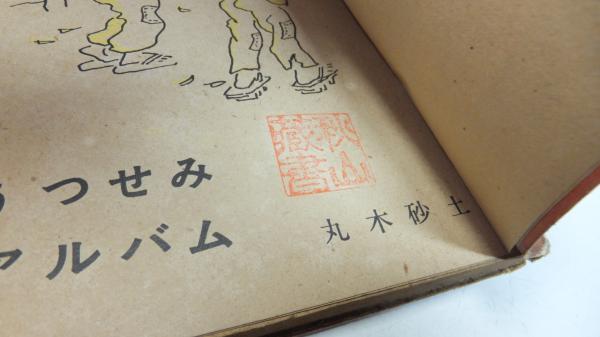 うつせみ
アルバム
秋山
藏書
丸木砂土